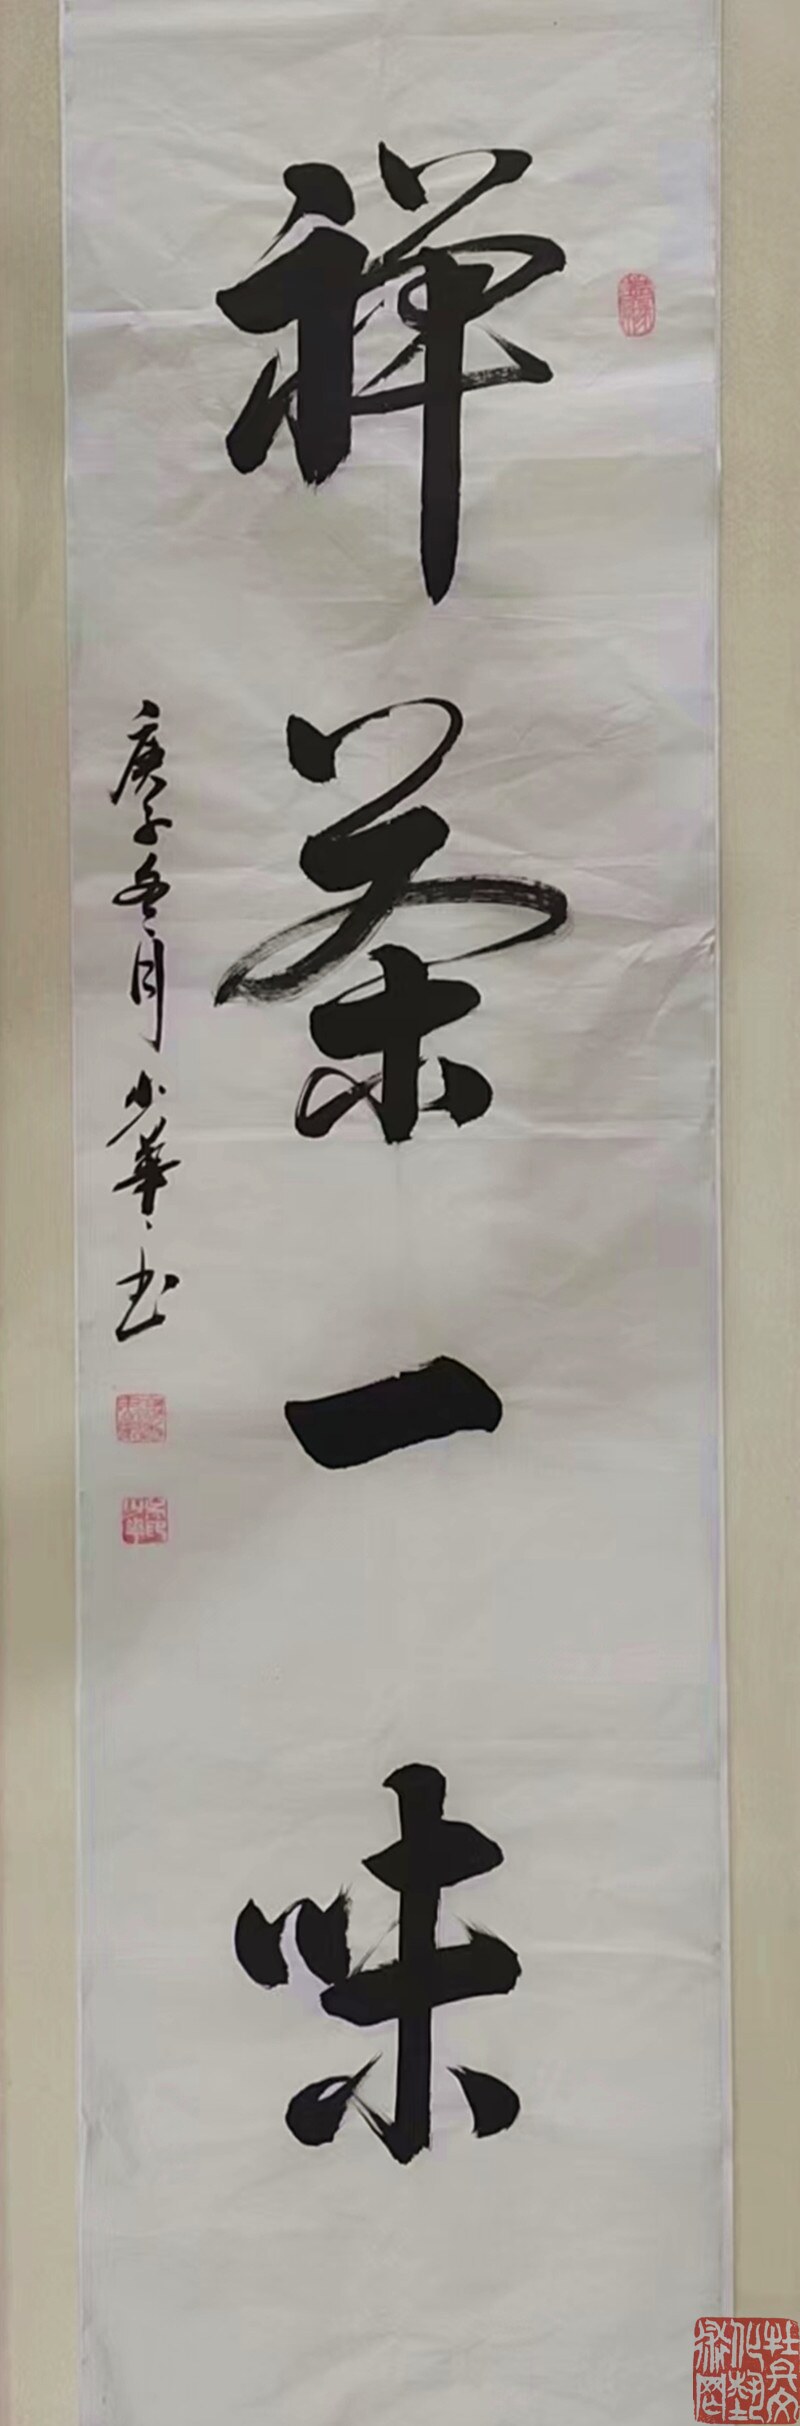 禅茶一味
庚子冬月少華书